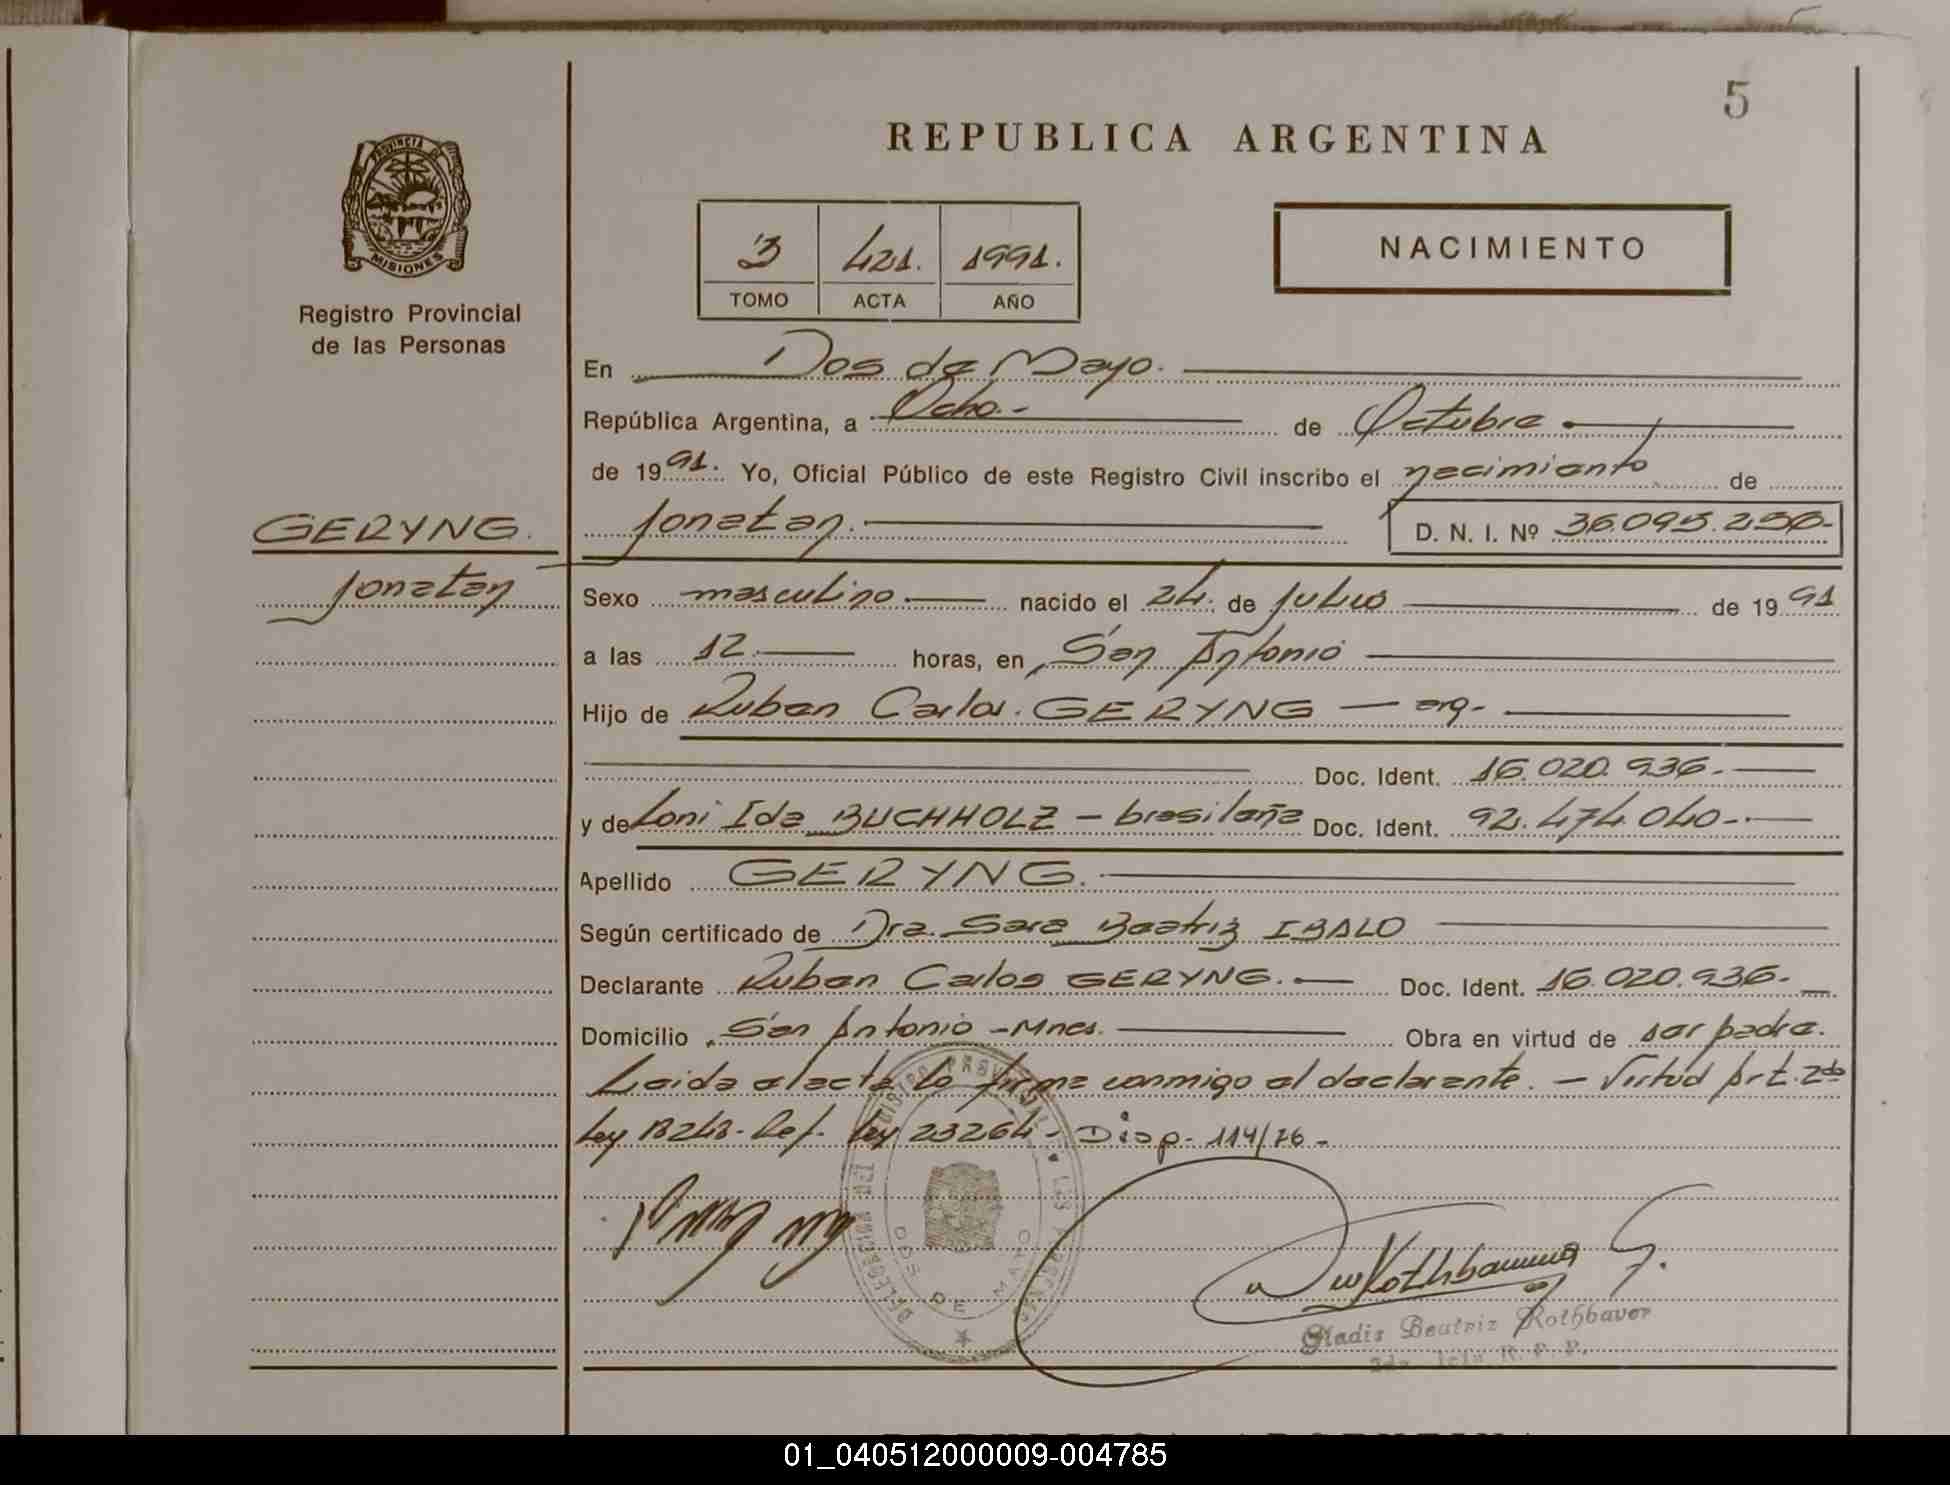 5
REPUBLICA ARGENTINA
PROVINCIA DE
MISIONES
Registro Provincial
de las Personas
3 421. 1991.
TOMO ACTA AÑO
NACIMIENTO
En Dos de Mayo.
República Argentina, a Ocho.- de Octubre
de 1991. Yo, Oficial Público de este Registro Civil inscribo el nacimiento de
GERYNG.
Jonatan. D. N. I. Nº 36.095.256-
Jonatan
Sexo masculino nacido el 24. de Julio de 1991
a las 12. horas, en San Antonio
Hijo de Ruben Carlos. GERYNG — arg-
Doc. Ident. 16.020.936-
y de Loni Ida BUCHHOLZ - brasileña Doc. Ident. 92.474.040-
Apellido GERYNG.
Según certificado de Dra. Sara Beatriz IBALO
Declarante Ruben Carlos GERYNG. Doc. Ident. 16.020.936-
Domicilio San Antonio - Mnes. Obra en virtud de ser padre.
Leida el acta lo firma conmigo el declarante. - Virtud Art. 2do
Ley 18248- Ref. Ley 23264- Disp- 114/76 -
DELEGACION DEL REGISTRO PROVINCIAL DE LAS PERSONAS
DOS DE MAYO
Rothbauer G.
Gladis Beatriz Rothbauer
R. P. P.
01_040512000009-004785